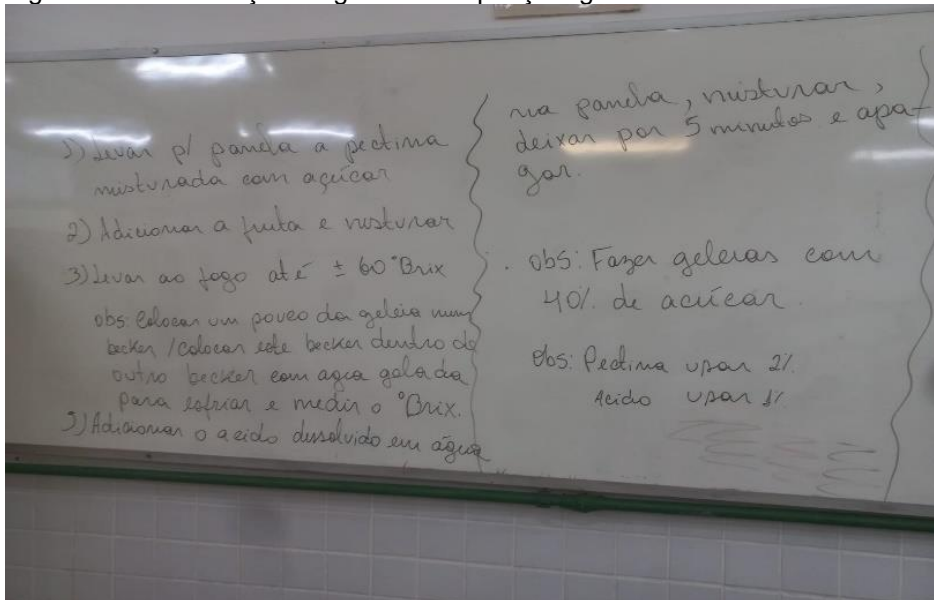 1) Levar p/ panela a pectina
misturada com açúcar
2) Adicionar a fruta e misturar
3) Levar ao fogo até ± 60°Brix
obs: Colocar um pouco da geleia num
becker / colocar este becker dentro de
outro becker com agua gelada
para esfriar e medir o °Brix.
Adicionar o acido dissolvido em água
na panela, misturar,
deixar por 5 minutos e apa-
gar.
. obs: Fazer geleias com
40% de acúcar.
Obs: Pectina usar 2%.
Acido usar 1%